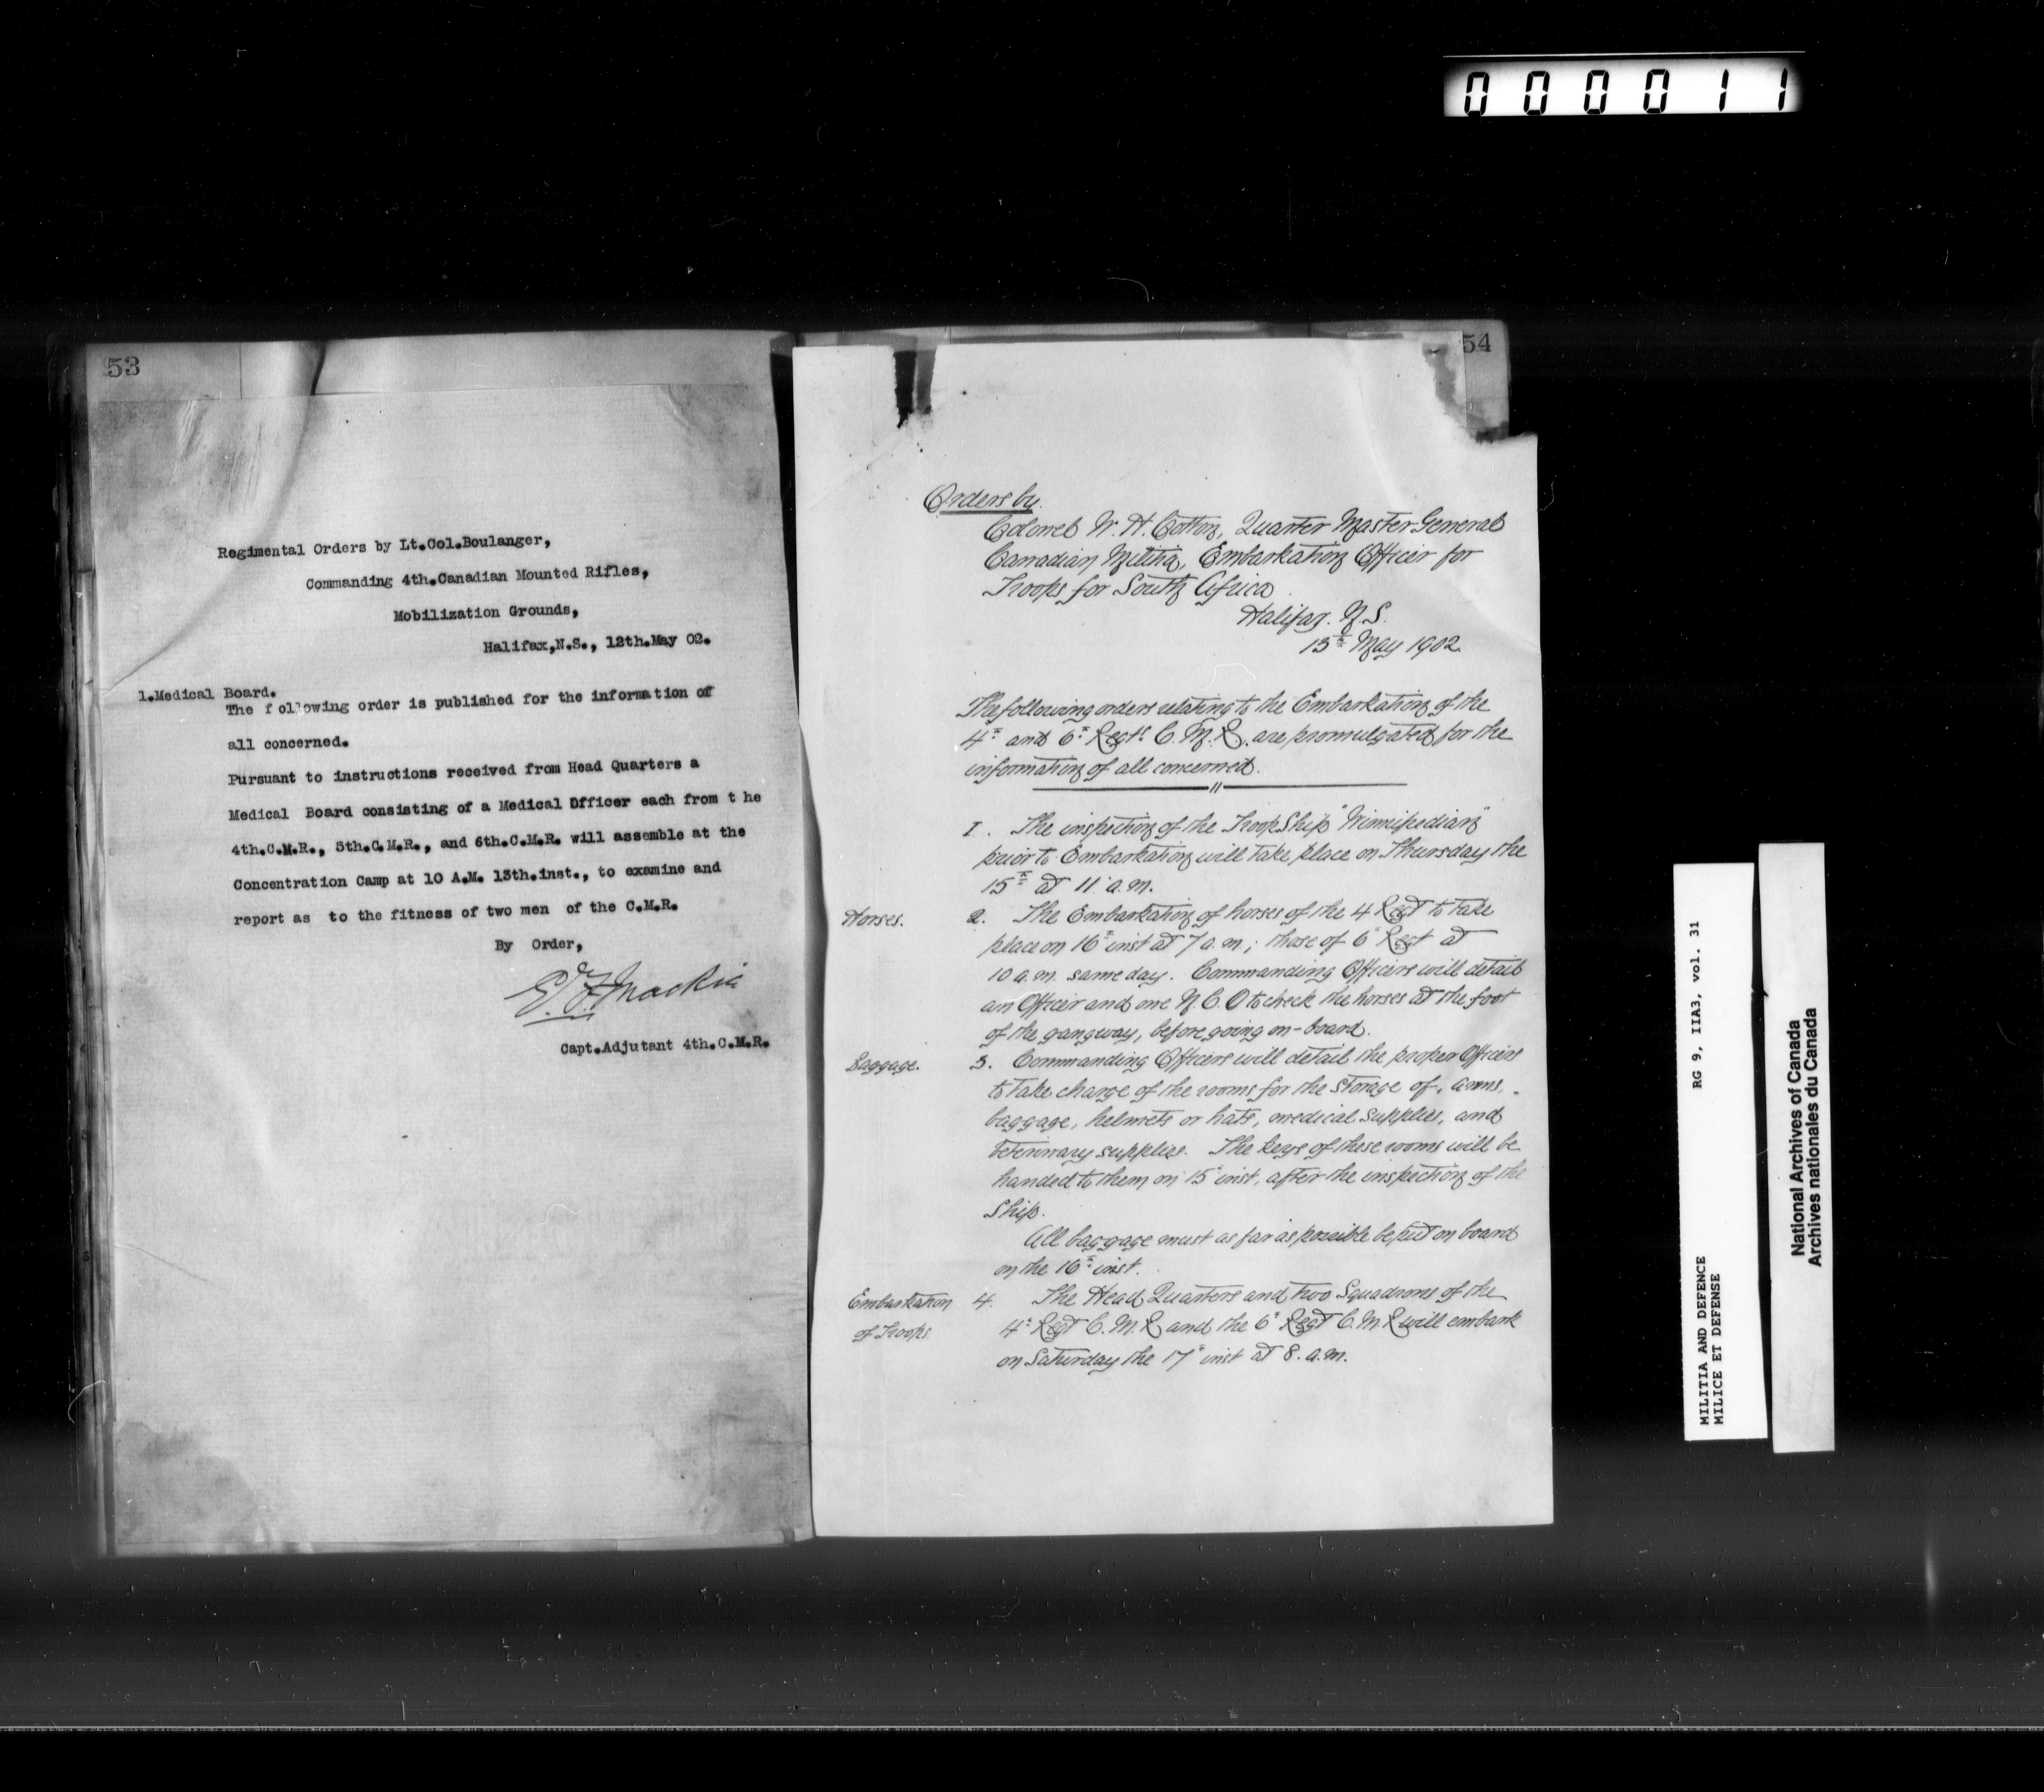 000011
53
Regimental Orders by Lt.Col.Boulanger,
Commanding 4th.Canadian Mounted Rifles,
Mobilization Grounds,
Halifax,N.S., 12th.May 02.
1.Medical Board.
The following order is published for the information of
all concerned.
Pursuant to instructions received from Head Quarters a
Medical Board consisting of a Medical Officer each from t he
4th.C.M.R., 5th.C.M.R., and 6th.C.M.R. will assemble at the
Concentration Camp at 10 A.M. 13th.inst., to examine and
report as to the fitness of two men of the C.M.R.
By Order,
Capt.Adjutant 4th.C.M.R.
54
Orders by
Colonel W. H. Cotton, Quarter Master General
Canadian Militia, Embarkation Officer for
Troops for South Africa
Halifax. N.S.
13th May 1902.
The following orders relating to the Embarkation of the
4th and 6th Regts. C. M. R. are promulgated for the
information of all concerned.
1. The inspection of the Troop Ship "Winnifredian"
prior to Embarkation will take place on Thursday the
15th at 11 a.m.
Horses. 2. The Embarkation of horses of the 4 Regt to take
place on 16th inst at 7 a.m; those of 6th Regt at
10 a.m. same day. Commanding Officers will detail
an Officer and one N.C.O to check the horses at the foot
of the gangway, before going on-board.
Baggage. 3. Commanding Officers will detail the proper Officers
to take charge of the rooms for the storage of, arms,
baggage, helmets or hats, medical supplies, and
veterinary supplies. The keys of these rooms will be
handed to them on 15th inst. after the inspection of the
Ship.
All baggage must as far as possible be put on board
on the 16th inst.
Embarkation 4. The Head Quarters and two Squadrons of the
of Troops 4th Regt C.M.R and the 6th Regt C.M.R will embark
on Saturday the 17th inst at 8. a.m.
MILITIA AND DEFENCE RG 9, IIA3, vol. 31
MILICE ET DEFENSE
National Archives of Canada
Archives nationales du Canada